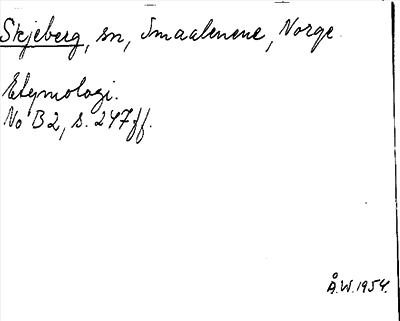 Skjeberg, sn, Smaalenene, Norge.
Etymologi.
No B2, s. 247ff.
Å.W.1954.